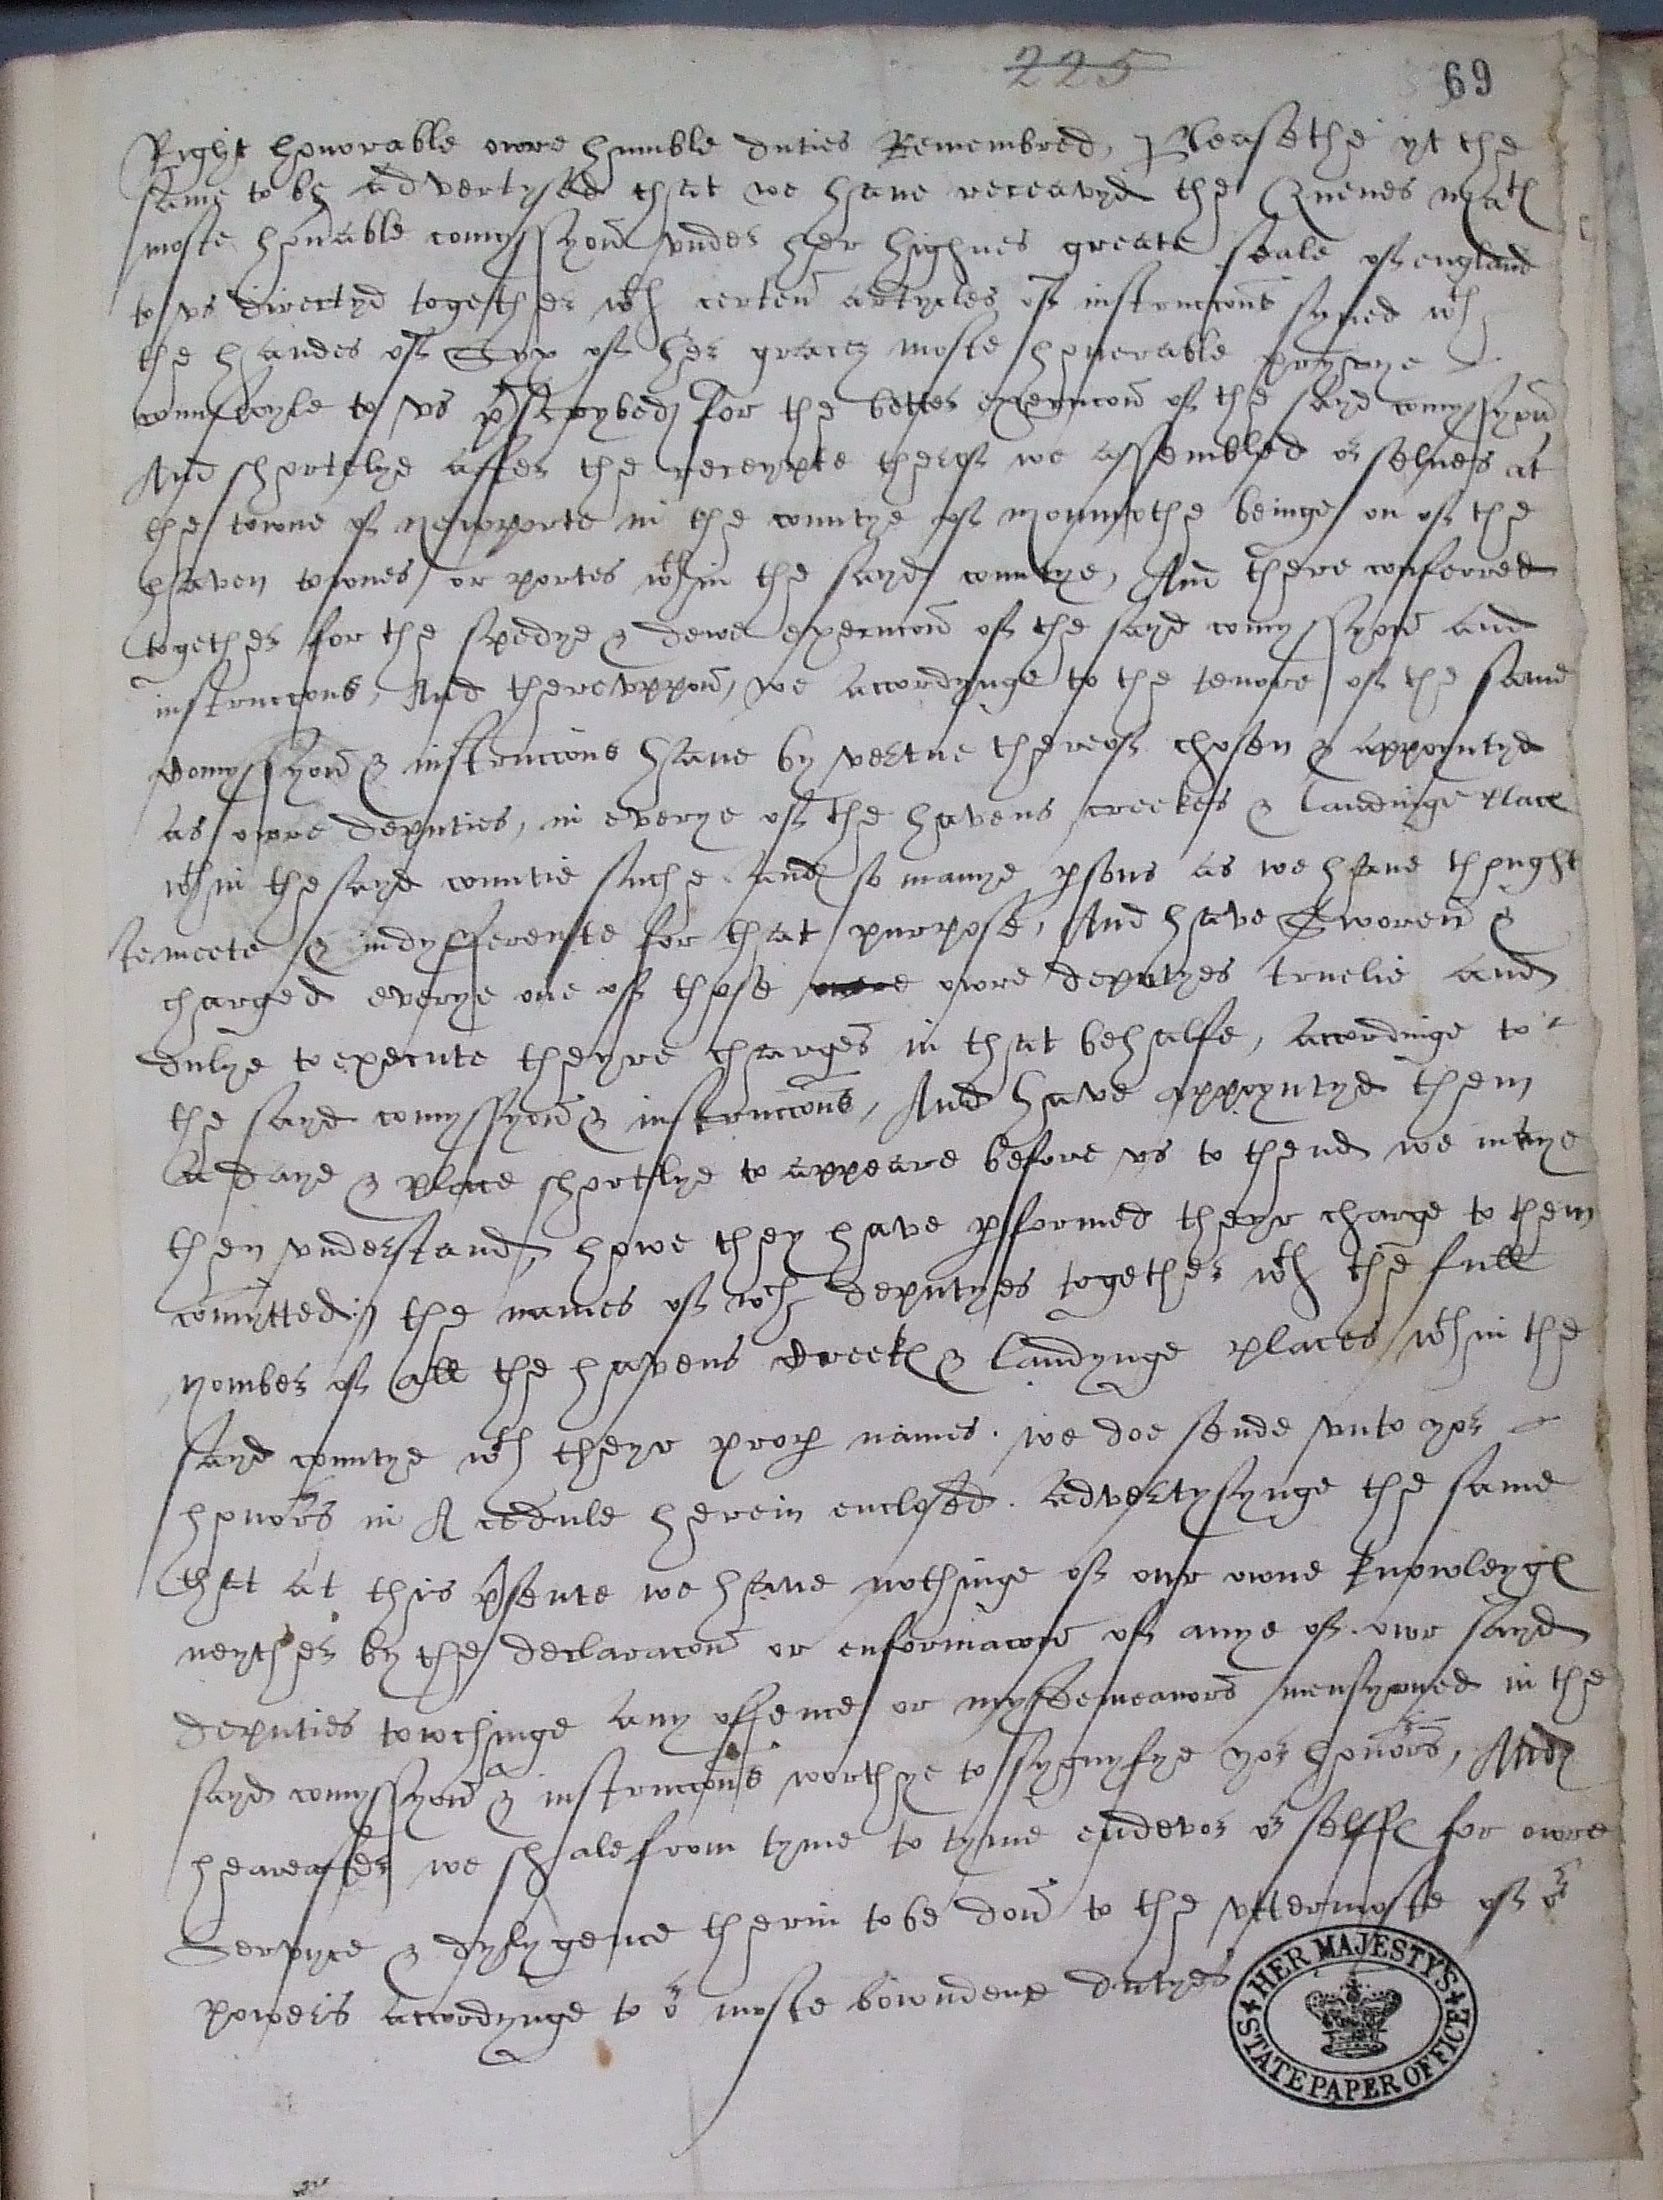 225
69
Right honorable owre humble duties Remembred, Pleasethe yt the
same to be advertysed that we haue receavyd the Quenes matʼ
moste honable comyssyon vnder her highnes greate seale of england
to vs directyd together wth certen artycles of instruccons syned wth
the handes of Syx of her graces moste honerable pryvye
counsayle to vs pscrybed for the better execucon of the sayd comyssyon
And shortelye after the receypte therof we assembled or selues at
the towne of newporte in the countye of monmothe beinge on of the
haven townes or portes wthin the sayd countye, And there conferred
together for the spedye & dewe execucon of the sayd comyssyon and
instruccons, And therevppon, we accordynge to the tenore of the same
comyssyon & instruccons haue by vertue thereof chosen & appoyntyd
as owre deputies, in everye of the havens creekes & landinge place
wthin the sayd countie suche and so manye psons as we haue thought
to meete & indyfferente for that purpose, And have Sworen &
charged everye one of those owre deputyes truelie and
dulye to execute theyre charges in that behalfe, accordinge to
the sayd comyssyon & instruccons, And have appoyntyd them
a daye & place shortlye to appeare before vs to thend we maye
then vnderstand, howe they have pformed theyr charge to them
comytted, the names of wch deputyes together wth the full
nomber of all the havens creekʼ & landynge places wthin the
sayd countye wth theyr prop names. we doe sende vnto yor
honors in A cedule herein enclosed. advertysynge the same
that at this psente we haue nothinge of our owne knowleygʼ
neyther by the declaracon or enformacon of anye of owr sayd
deputies towchinge any offence or mysdemeanors mensyoned in the
sayd comyssyon & instruccons worthye to sygnyfye yor honors, And
heareafter we shale from tyme to tyme endevor or selffʼ for owre
Servyce & dylygence therin to be don to the vttermoste of or
powers accordynge to or moste bowndene dutyes
HER MAJESTY'S
STATE PAPER OFFICE